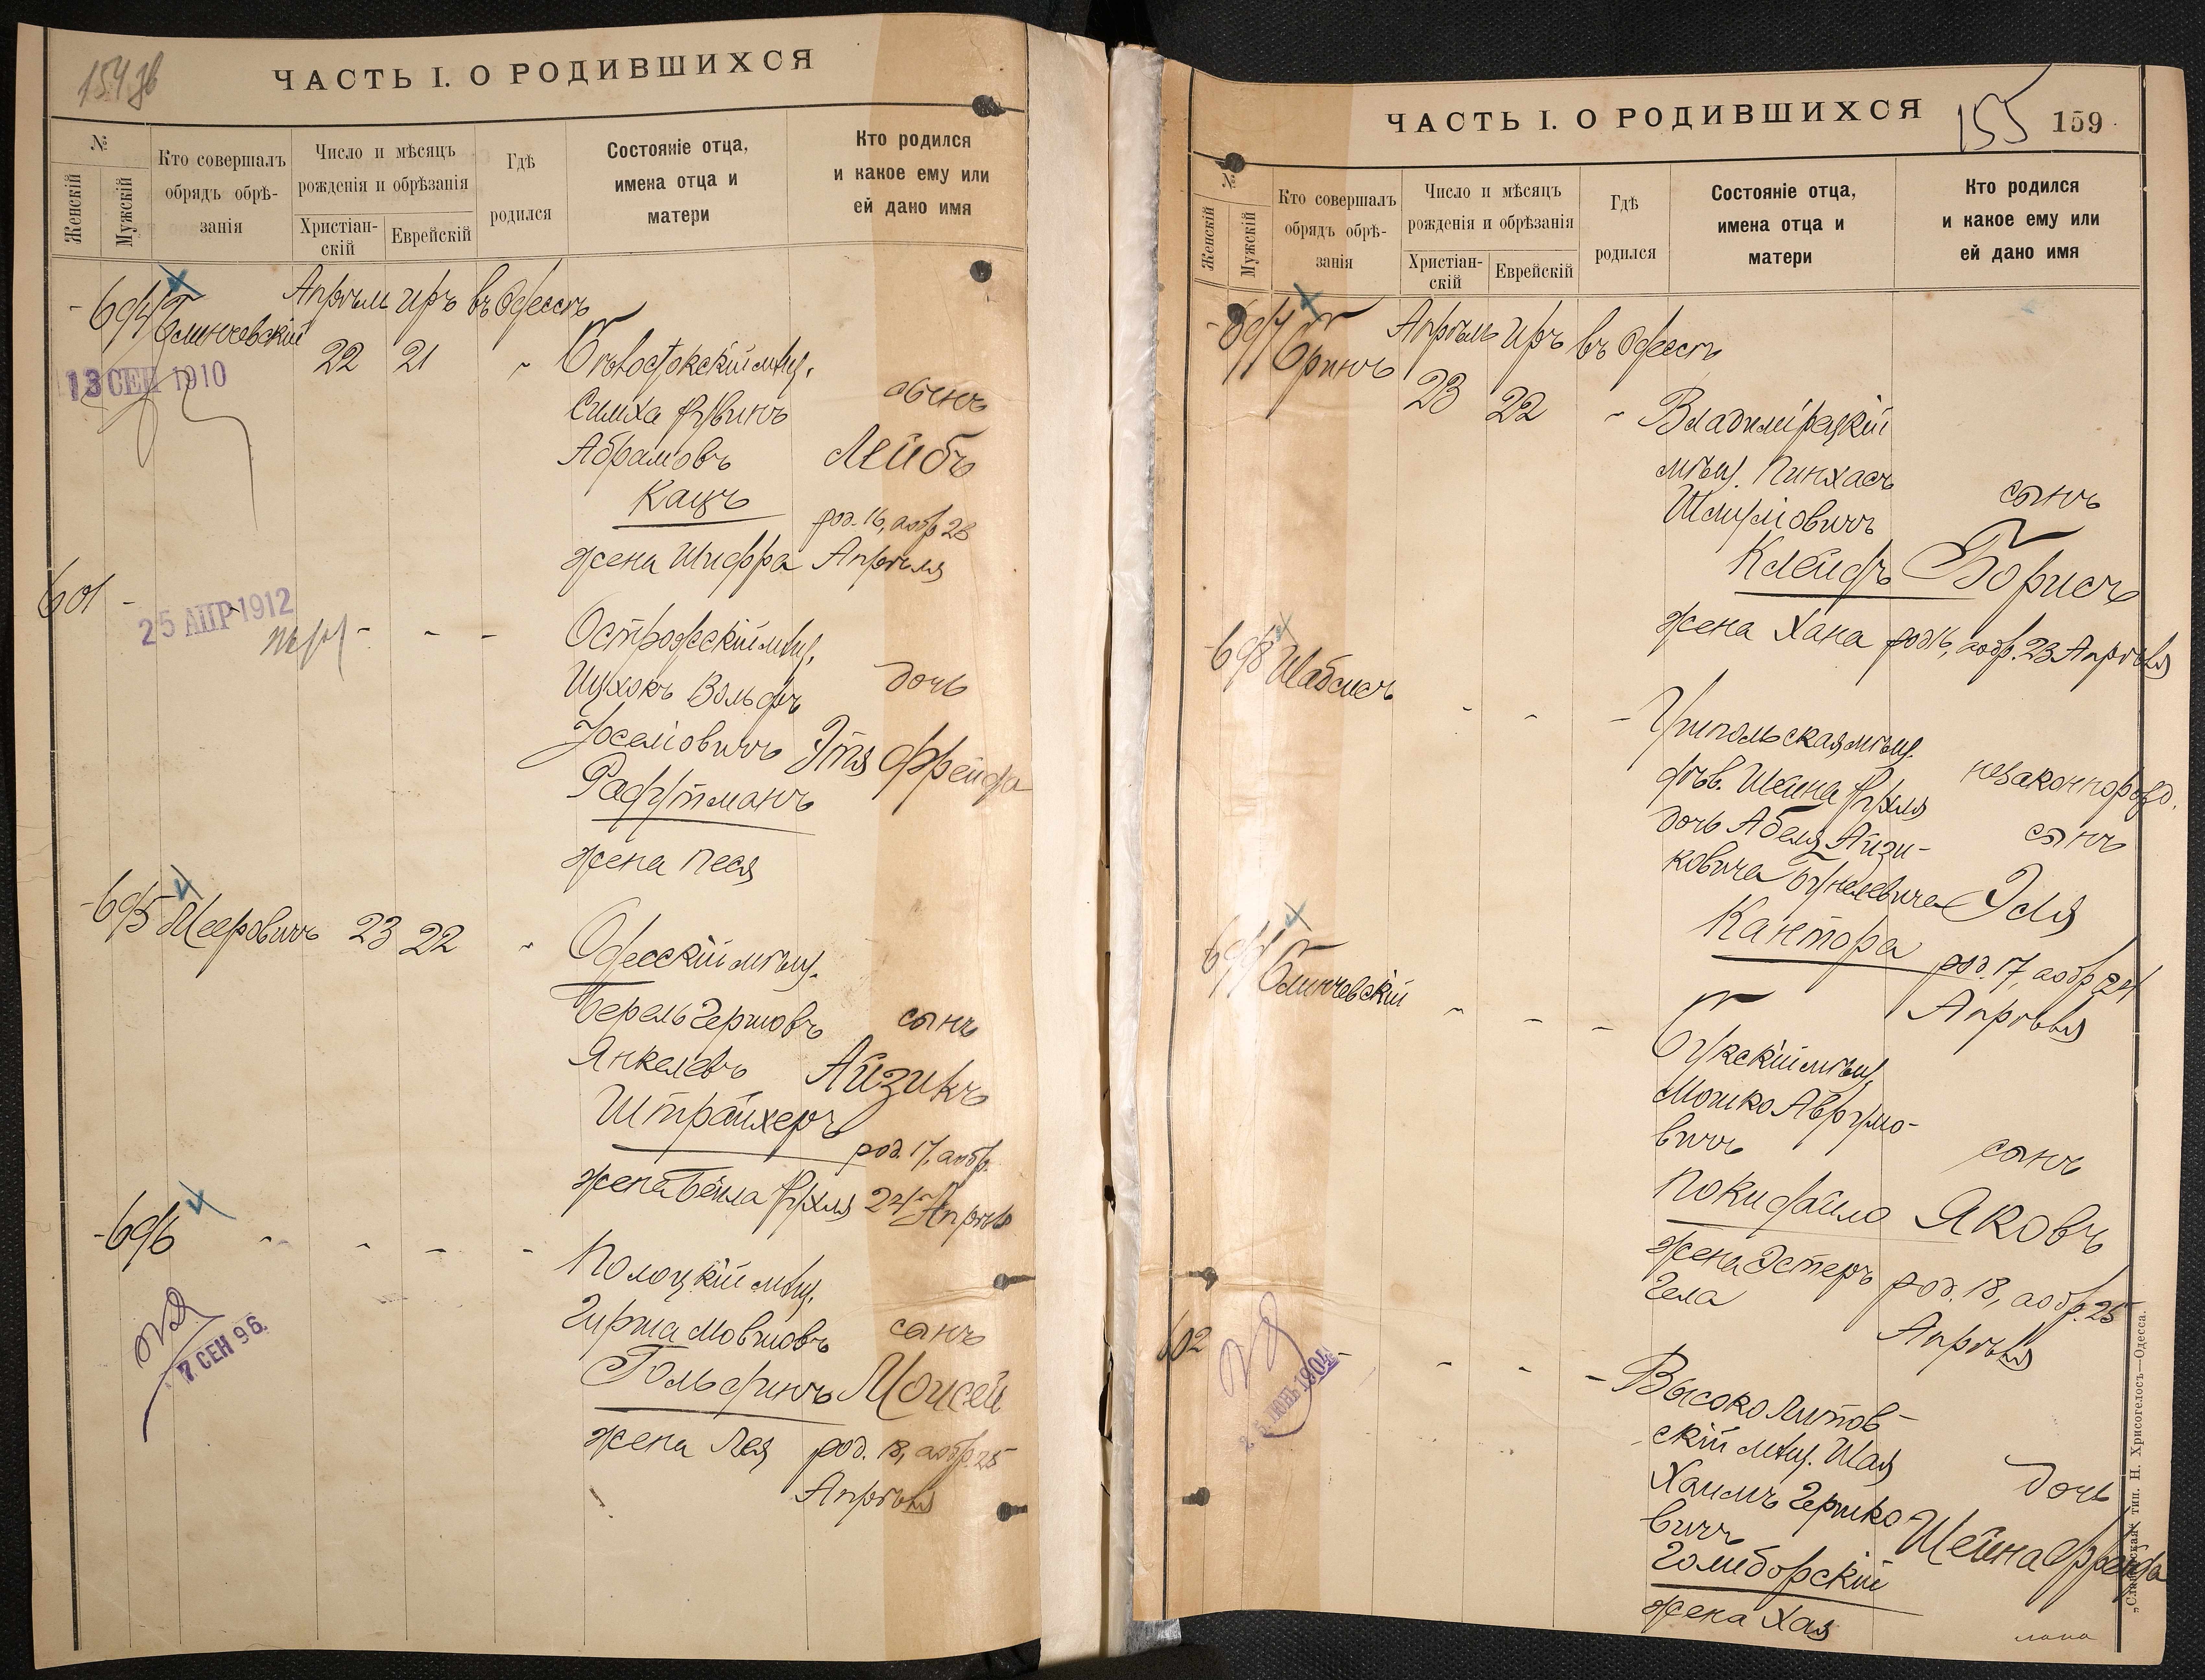 154 об
ЧАСТЬ I. О РОДИВШИХСЯ
№
Женскій
Мужскій
Кто совершалъ
обрядъ обрѣ-
занія
Число и мѣсяцъ
рожденія и обрѣзанія
Христіан-
скій
Еврейскій
Гдѣ
родился
Состояніе отца,
имена отца и
матери
Кто родился
и какое ему или
ей дано имя
- 694 Блинчевскій
Апрѣль Иръ въ Одессѣ
22 21 -
13 СЕН 1910
Бѣлостокскій мѣщ.
Симха Рувинъ
Абрамовъ
Кацъ
жена Шифра
сынъ
Лейбъ
род. 16, а обр 23
Апрѣля
601 -
25 АПР 1912
- - -
Острожскій мѣщ.
Ицхокъ Вольфъ
Іоселіовичъ
жена Песя
дочь
Этя Фрейда
-695 Мееровичъ 23 22 -
Одесскій мѣщ.
Берель Гершовъ
Янкелевъ
Штрайхеръ
жена Бейла Рухля
сынъ
Айзикъ
род. 17, а обр.
24 Апрѣля
-696 - - - -
7 СЕН 96.
Полоцкій мѣщ.
Гирша Мовшовъ
Гольфинъ
жена Лея
сынъ
Моисей
род. 18, а обр. 25
Апрѣля
ЧАСТЬ I. О РОДИВШИХСЯ
155 159
№
Женскій
Мужскій
Кто совершалъ
обрядъ обрѣ-
занія
Число и мѣсяцъ
рожденія и обрѣзанія
Христіан-
скій
Еврейскій
Гдѣ
родился
Состояніе отца,
имена отца и
матери
Кто родился
и какое ему или
ей дано имя
- 697 Бринъ
Апрѣль Иръ въ Одессѣ
23 22 -
мѣщ. Пинхасъ
Шмуліовичъ
Клейфъ
жена Хана
сынъ
Борисъ
род 16, а обр. 23 Апрѣля
-698 Шабсисъ
- - -
Трипольская мѣщ.
дѣв. Шейна Рухля
дочь Абеля Айзи-
ковича
Кантора
незаконнорожд.
сынъ
Эля
род. 17, а обр 24
Апрѣля
699 Блинчевскій
- - -
мѣщ.
Мошко Аврумо-
вичъ
Покидайло
жена Эстеръ
Гела
сынъ
Яковъ
род. 18, а обр. 25
Апрѣля
602
25 ІЮНЬ 1904
- - - -
Высоко Литов-
скій мѣщ. Шая
Хаимъ Гершко
вичъ
Голиборскій
жена Хая
дочь
Шейна Фрейда
„Славянская“ тип. Н. Хрисогелосъ—Одесса.